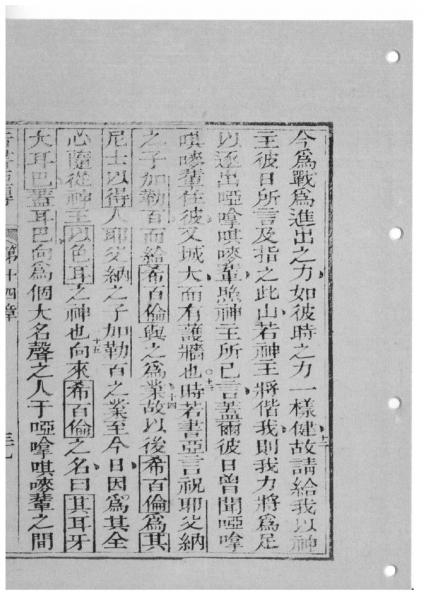 今為戰為進出之力如彼時之力一樣健故請給我以神
十二
主彼日所言及指之此山若神主將偕我則我力將為足
以逐出啞嗱唭嘜輩照神主所已言蓋爾彼日曾聞啞嗱
唭嘜輩在彼又城大而有護牆也時若書亞言祝耶父納
十三
十四
之子加勒百而給希百倫與之為業故以後希百倫為其
尼士以得人耶父納之子加勒百之業至今日因為其全
心隨從神主以色耳之神也向來希百倫之名曰其耳牙
十五
大耳巴蓋耳巴向為個大名聲之人于啞嗱唭嘜輩之間
第十四章